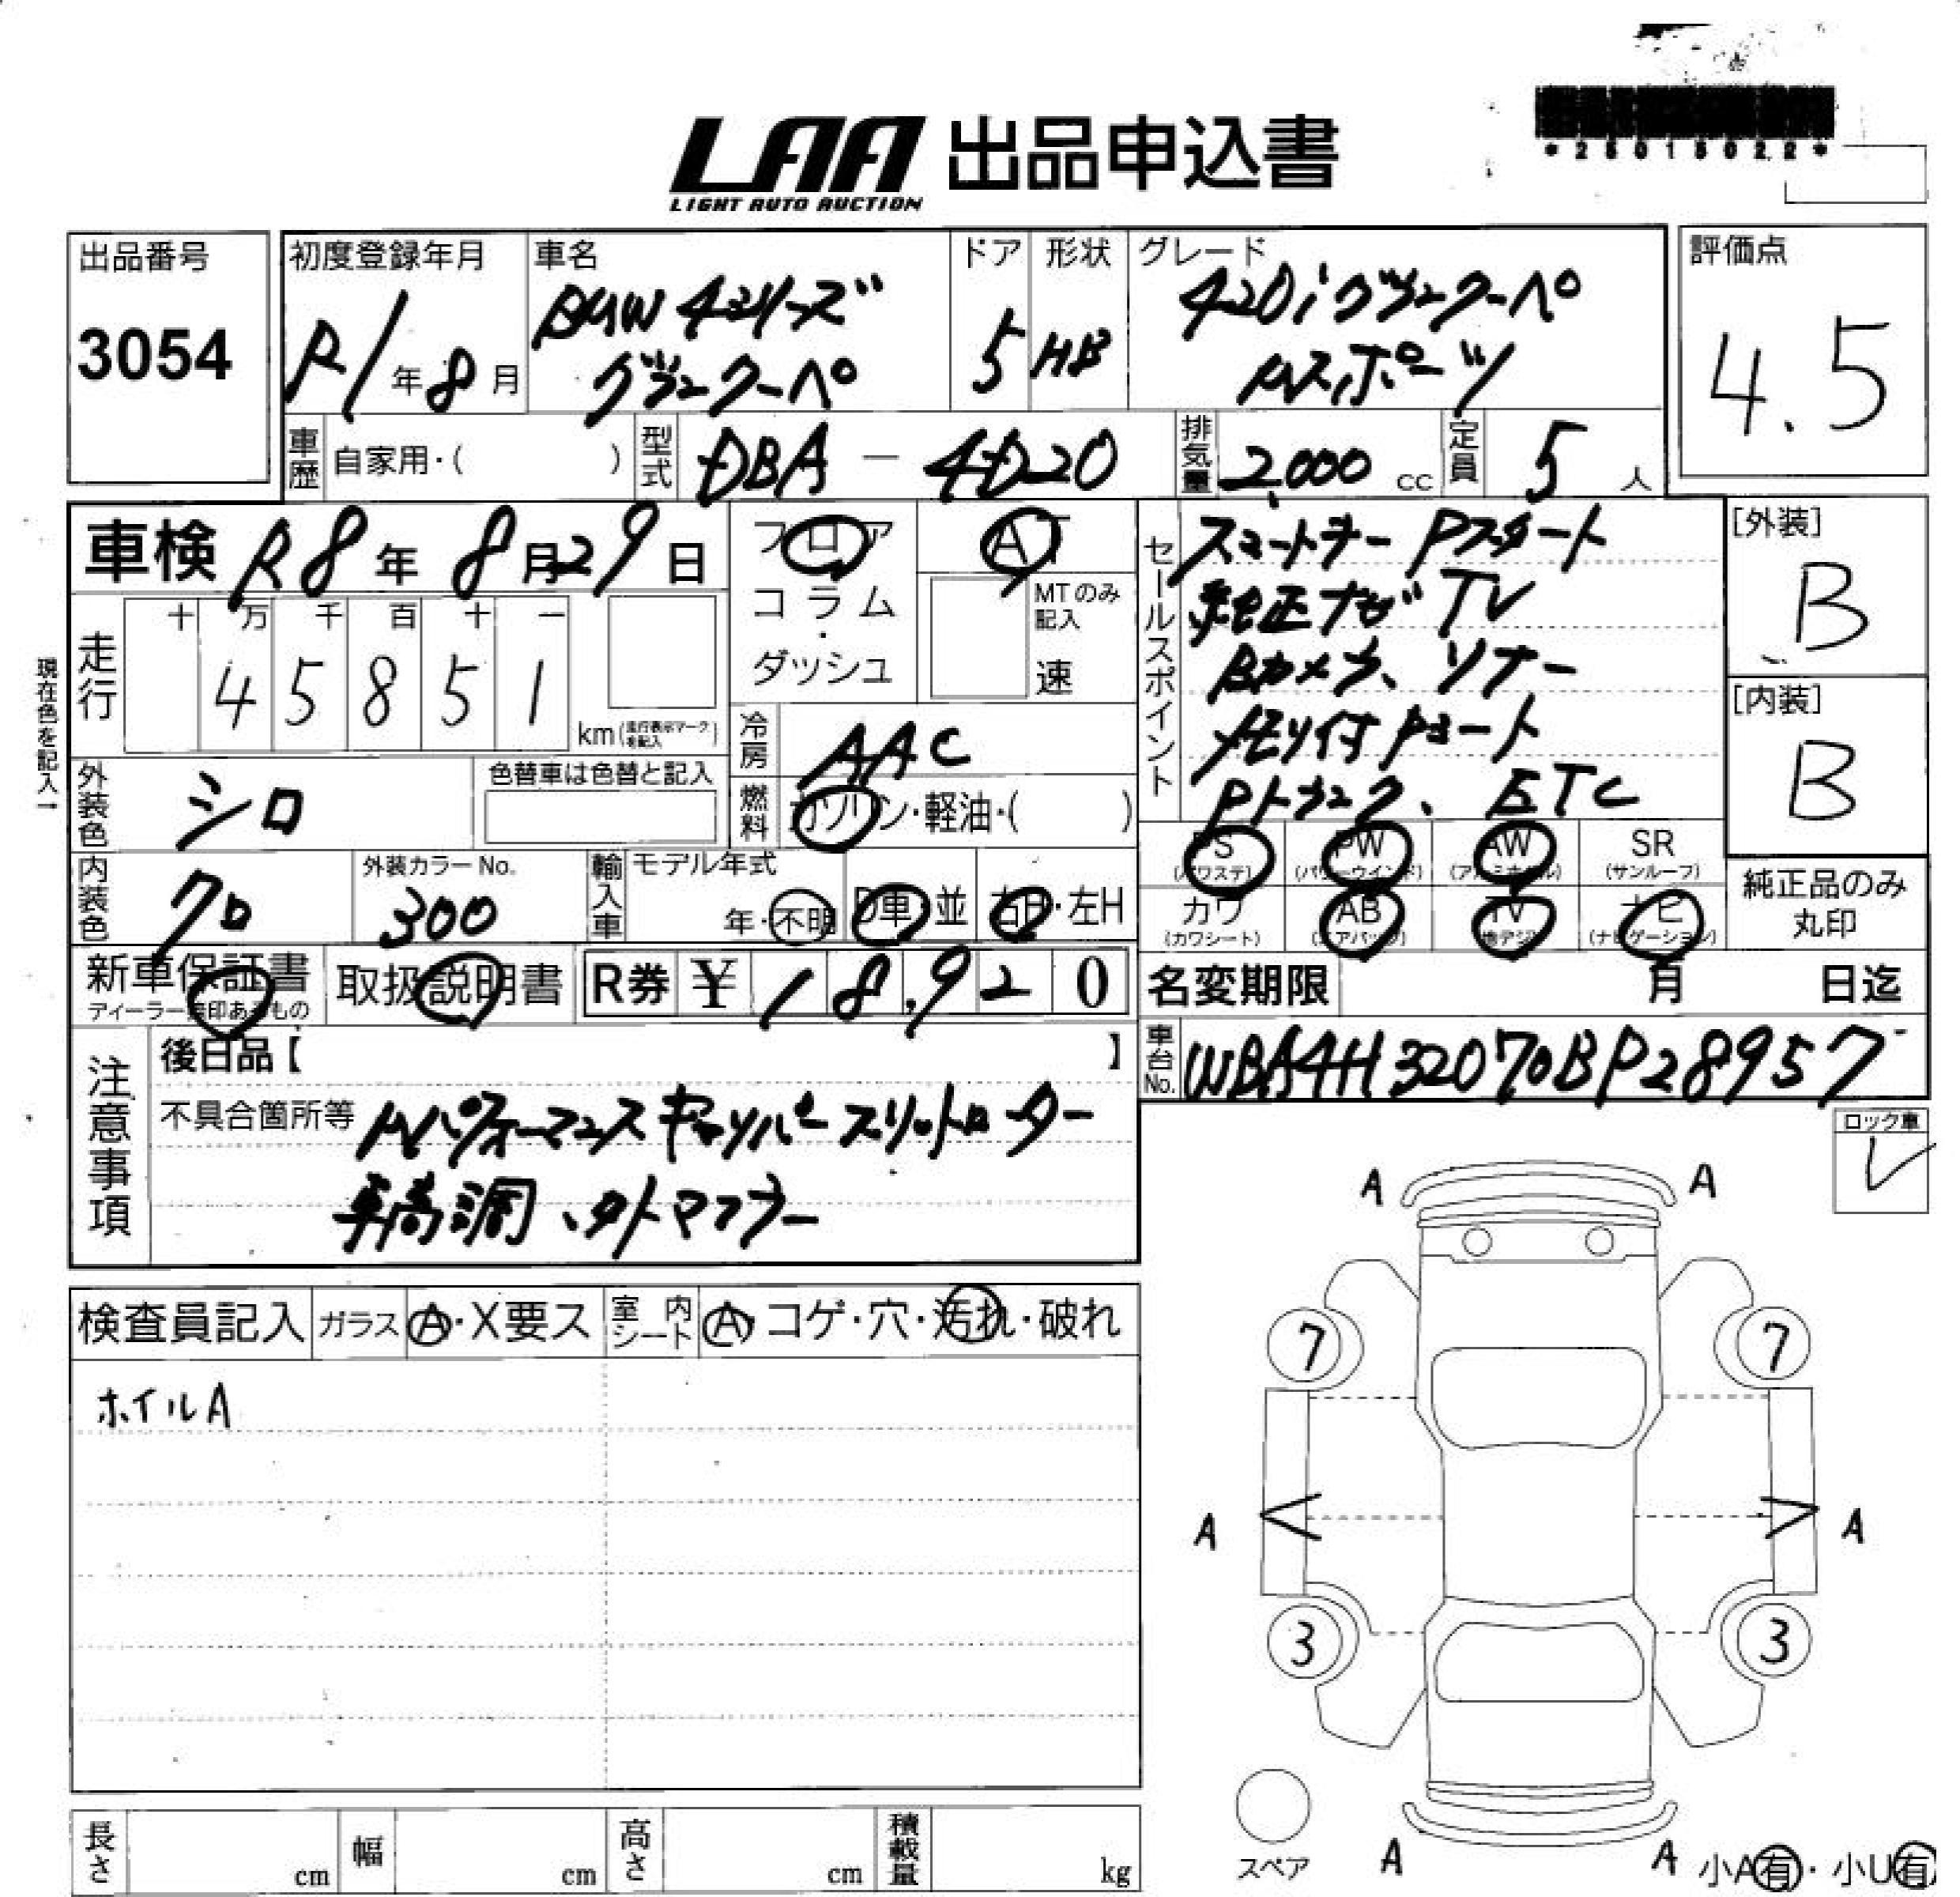 LAA 出品申込書
LIGHT AUTO AUCTION
*25015022*
出品番号
3054
初度登録年月
R1年8月
車名
BMW 4シリーズ
グランクーペ
ドア
5
形状
HB
グレード
420iグランクーペ
Mスポーツ
評価点
4.5
車歴 自家用・( )
型式 DBA - 4D20
排気量 2,000 cc
定員 5 人
車検 R8年8月29日
フロア
コラム・ダッシュ
AT
MTのみ記入
速
走行
十 万 千 百 十 一
4 5 8 5 1
km(走行表示マークを記入)
現在色を記入→
冷房 AAC
外装色 シロ
色替車は色替と記入
燃料 ガソリン・軽油・( )
内装色 クロ
外装カラーNo.
300
輸入車 モデル年式
年・不明 D車・並 右H・左H
セールスポイント
スマートキー Pスタート
純正ナビ TV
Bカメラ、ソナー
メモリ付Pシート
Pトランク、ETC
[外装]
B
[内装]
B
PS (パワステ) PW (パワーウインド) AW (アルミホイル) SR (サンルーフ)
カワ (カワシート) AB (エアバッグ) TV (地デジ) ナビ (ナビゲーション)
純正品のみ
丸印
新車保証書
ディーラー捺印あるもの
取扱説明書
R券 ¥ 18,920
名変期限 月 日迄
車台No. WBA4H32070BP28957
注意事項
後日品【 】
不具合箇所等 Mパフォーマンスキャリパー スリットローター
車高調、外マフラー
ロック車
レ
検査員記入 ガラス A・X要ス 室内シート A・コゲ・穴・汚れ・破れ
ホイルA
A A
7 7
A A
3 3
スペア
A A
小A有・小U有
長さ cm 幅 cm 高さ cm 積載量 kg